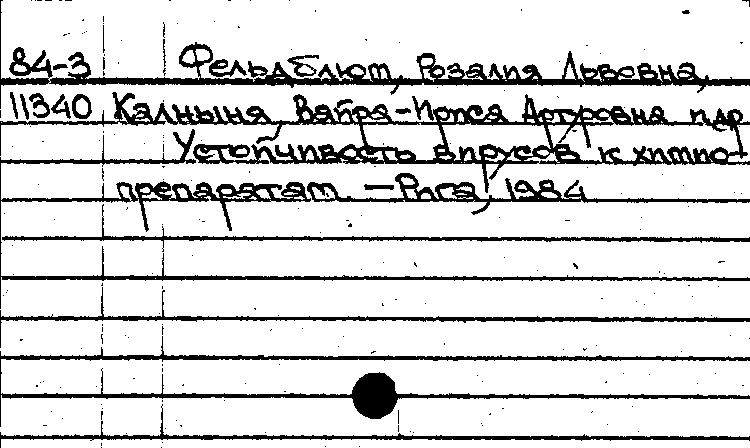 84-3 Фельдблюм, Розалия Львовна,
11340 Калныня, Вайра-Ирися Артуровна и др
Устойчивость вирусов к химио-
препаратам. — Рига, 1984